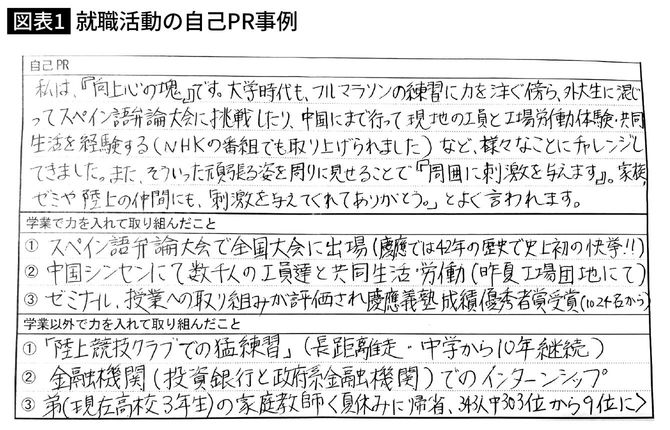 図表1 就職活動の自己PR事例
自己PR
私は、『向上心の塊』です。大学時代も、フルマラソンの練習に力を注ぐ傍ら、外大生に混じ
ってスペイン語弁論大会に挑戦したり、中国にまで行って現地の工員と工場労働体験・共同
生活を経験する(NHKの番組でも取り上げられました)など、様々なことにチャレンジし
てきました。また、そういった頑張る姿を周りに見せることで『周囲に刺激を与えます』。家族、
ゼミや陸上の仲間にも、「刺激を与えてくれてありがとう。」とよく言われます。
学業で力を入れて取り組んだこと
① スペイン語弁論大会で全国大会に出場(慶應では42年の歴史で史上初の快挙!!)
② 中国シンセンにて数千人の工員達と共同生活・労働(昨夏工場団地にて)
③ ゼミナール、授業への取り組みが評価され慶應義塾成績優秀者賞受賞(1024名から)
学業以外で力を入れて取り組んだこと
① 「陸上競技クラブでの猛練習」(長距離走・中学から10年継続)
② 金融機関(投資銀行と政府系金融機関)でのインターンシップ
③ 弟(現在高校3年生)の家庭教師〈夏休みに帰省、343人中303位から9位に〉